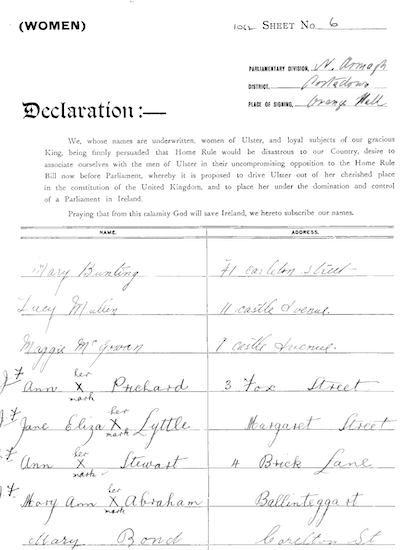 (WOMEN)
1012 SHEET No. 6
PARLIAMENTARY DIVISION, N. Armagh
DISTRICT, Portadown
PLACE OF SIGNING, Orange Hall
Declaration:—
We, whose names are underwritten, women of Ulster, and loyal subjects of our gracious
King, being firmly persuaded that Home Rule would be disastrous to our Country, desire to
associate ourselves with the men of Ulster in their uncompromising opposition to the Home Rule
Bill now before Parliament, whereby it is proposed to drive Ulster out of her cherished place
in the constitution of the United Kingdom, and to place her under the domination and control
of a Parliament in Ireland.
Praying that from this calamity God will save Ireland, we hereto subscribe our names.
NAME. ADDRESS.
Mary Bunting 71 Carleton Street
Lucy Mullen 11 Castle Avenue.
Maggie McGowan 7 Castle Avenue.
her
Ann X Prichard 3 Fox Street
mark
her
Jane Eliza X Lyttle Margaret Street
mark
her
Ann X Stewart 4 Brick Lane
mark
her
Mary Ann X Abraham Ballinteggart
mark
Mary Bond Carelton St